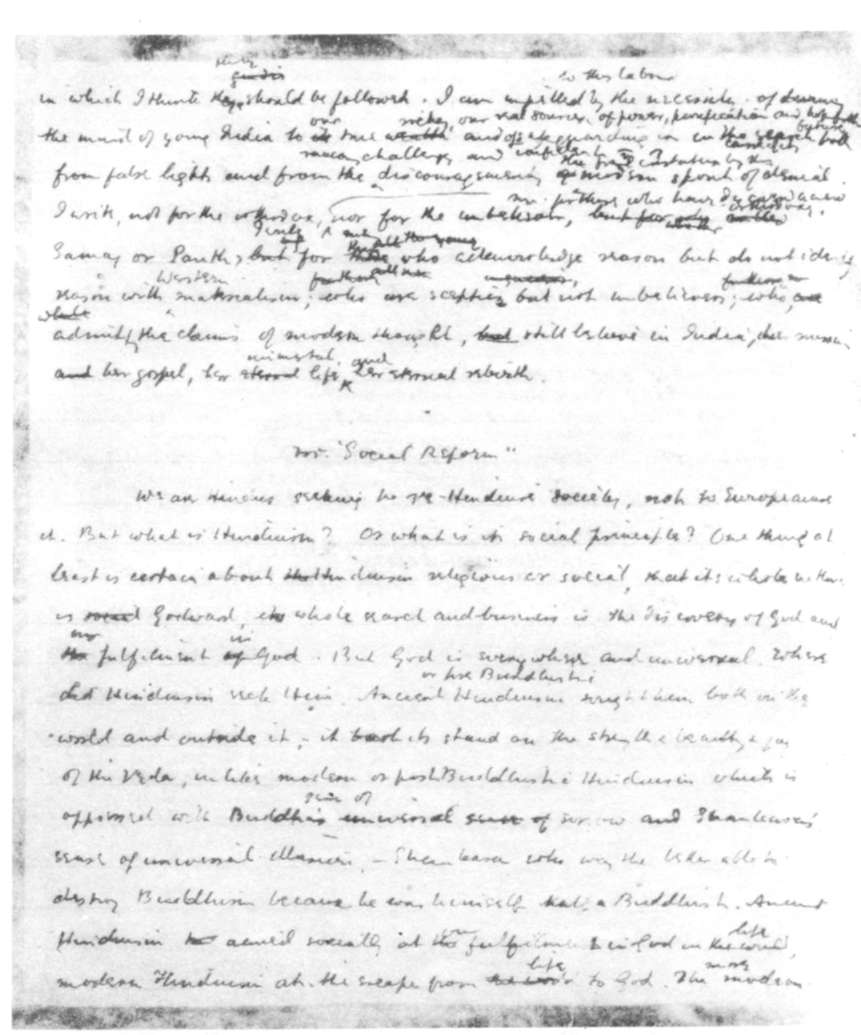 to this labour
in which I think they should be followed. I am impelled by the necessity of
our riches, our real sources of power, purification and hope
the mind of young India to true wealth and of safeguarding in the search
from false lights and from the discouragements modern spirit of denial.
I write, not for the orthodox, nor for the unbeliever, who have discovered a new orthodoxy,
Samaj or Panth, but for those who acknowledge reason but do not identify
Western
reason with materialism; who are sceptics but not unbelievers; who,
while
admitting the claims of modern thought, still believe in India, her mission
immortal and
and her gospel, her eternal life, her eternal rebirth.
"Social Reform"
We are Hindus seeking to re-Hinduise society, not to Europeanise
it. But what is Hinduism? Or what is its social principle? One thing at
least is certain about Hinduism religious or social, that its whole
is Godward, its whole search and business is the discovery of God and
our in
fulfilment of God. But God is everywhere and universal. Where
or pre Buddhistic
did Hinduism seek Him. Ancient Hinduism sought him both in the
world and outside it; it took its stand on the strength & beauty & joy
of the Veda, unlike modern or post Buddhistic Hinduism which is
sense of
oppressed with Buddha's universal sense of sorrow and Shankara's
sense of universal illusion, - Shankara who was the better able to
destroy Buddhism because he was himself half a Buddhist. Ancient
life
Hinduism aimed socially at our fulfilment in God in the world,
life more
modern Hinduism at the escape from the world to God. The modern